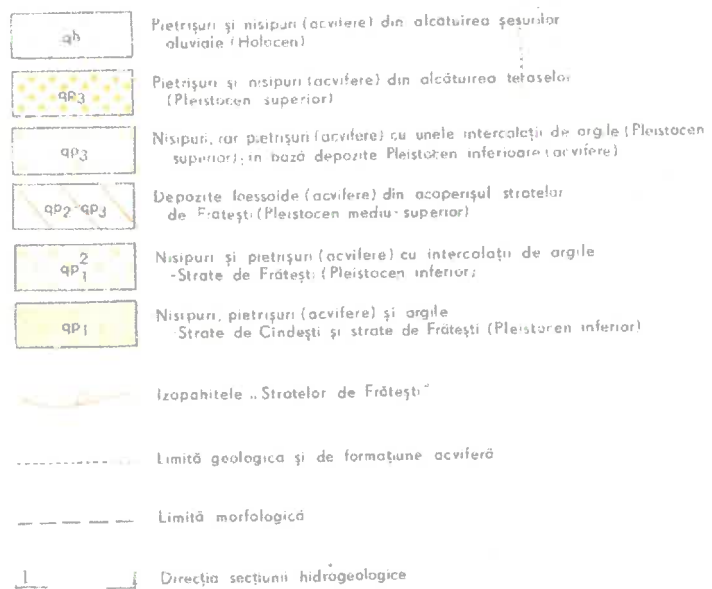 qh
Pietrişuri şi nisipuri (acvifere) din alcătuirea şesurilor
aluviale (Holocen)
qp3
Pietrişuri şi nisipuri (acvifere) din alcătuirea teraselor
(Pleistocen superior)
qp3
Nisipuri, rar pietrişuri (acvifere) cu unele intercalaţii de argile (Pleistocen
superior); in bază depozite Pleistocen inferioare (acvifere)
qp2-qp3
Depozite loessoide (acvifere) din acoperişul stratelor
de Frăteşti (Pleistocen mediu-superior)
qp1 2
Nisipuri şi pietrişuri (acvifere) cu intercalaţii de argile
-Strate de Frăteşti (Pleistocen inferior;
qp1
Nisipuri, pietrişuri (acvifere) şi argile
Strate de Cindeşti şi strate de Frăteşti (Pleistocen inferior)
Izopahitele „Stratelor de Frăteşti"
Limită geologica şi de formaţiune acviferă
Limită morfologică
I I Direcţia secţiunii hidrogeologice